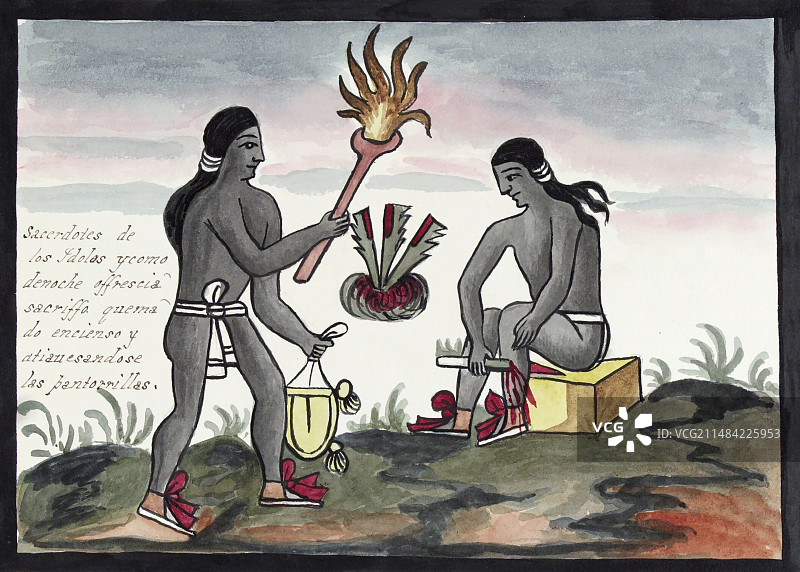 Sacerdotes de
los Ydolos y como
denoche offrescia
sacriffo quema
do encienso y
atiauesandose
las pantorrillas.
VCG
VCG
ID:VCG211484225953